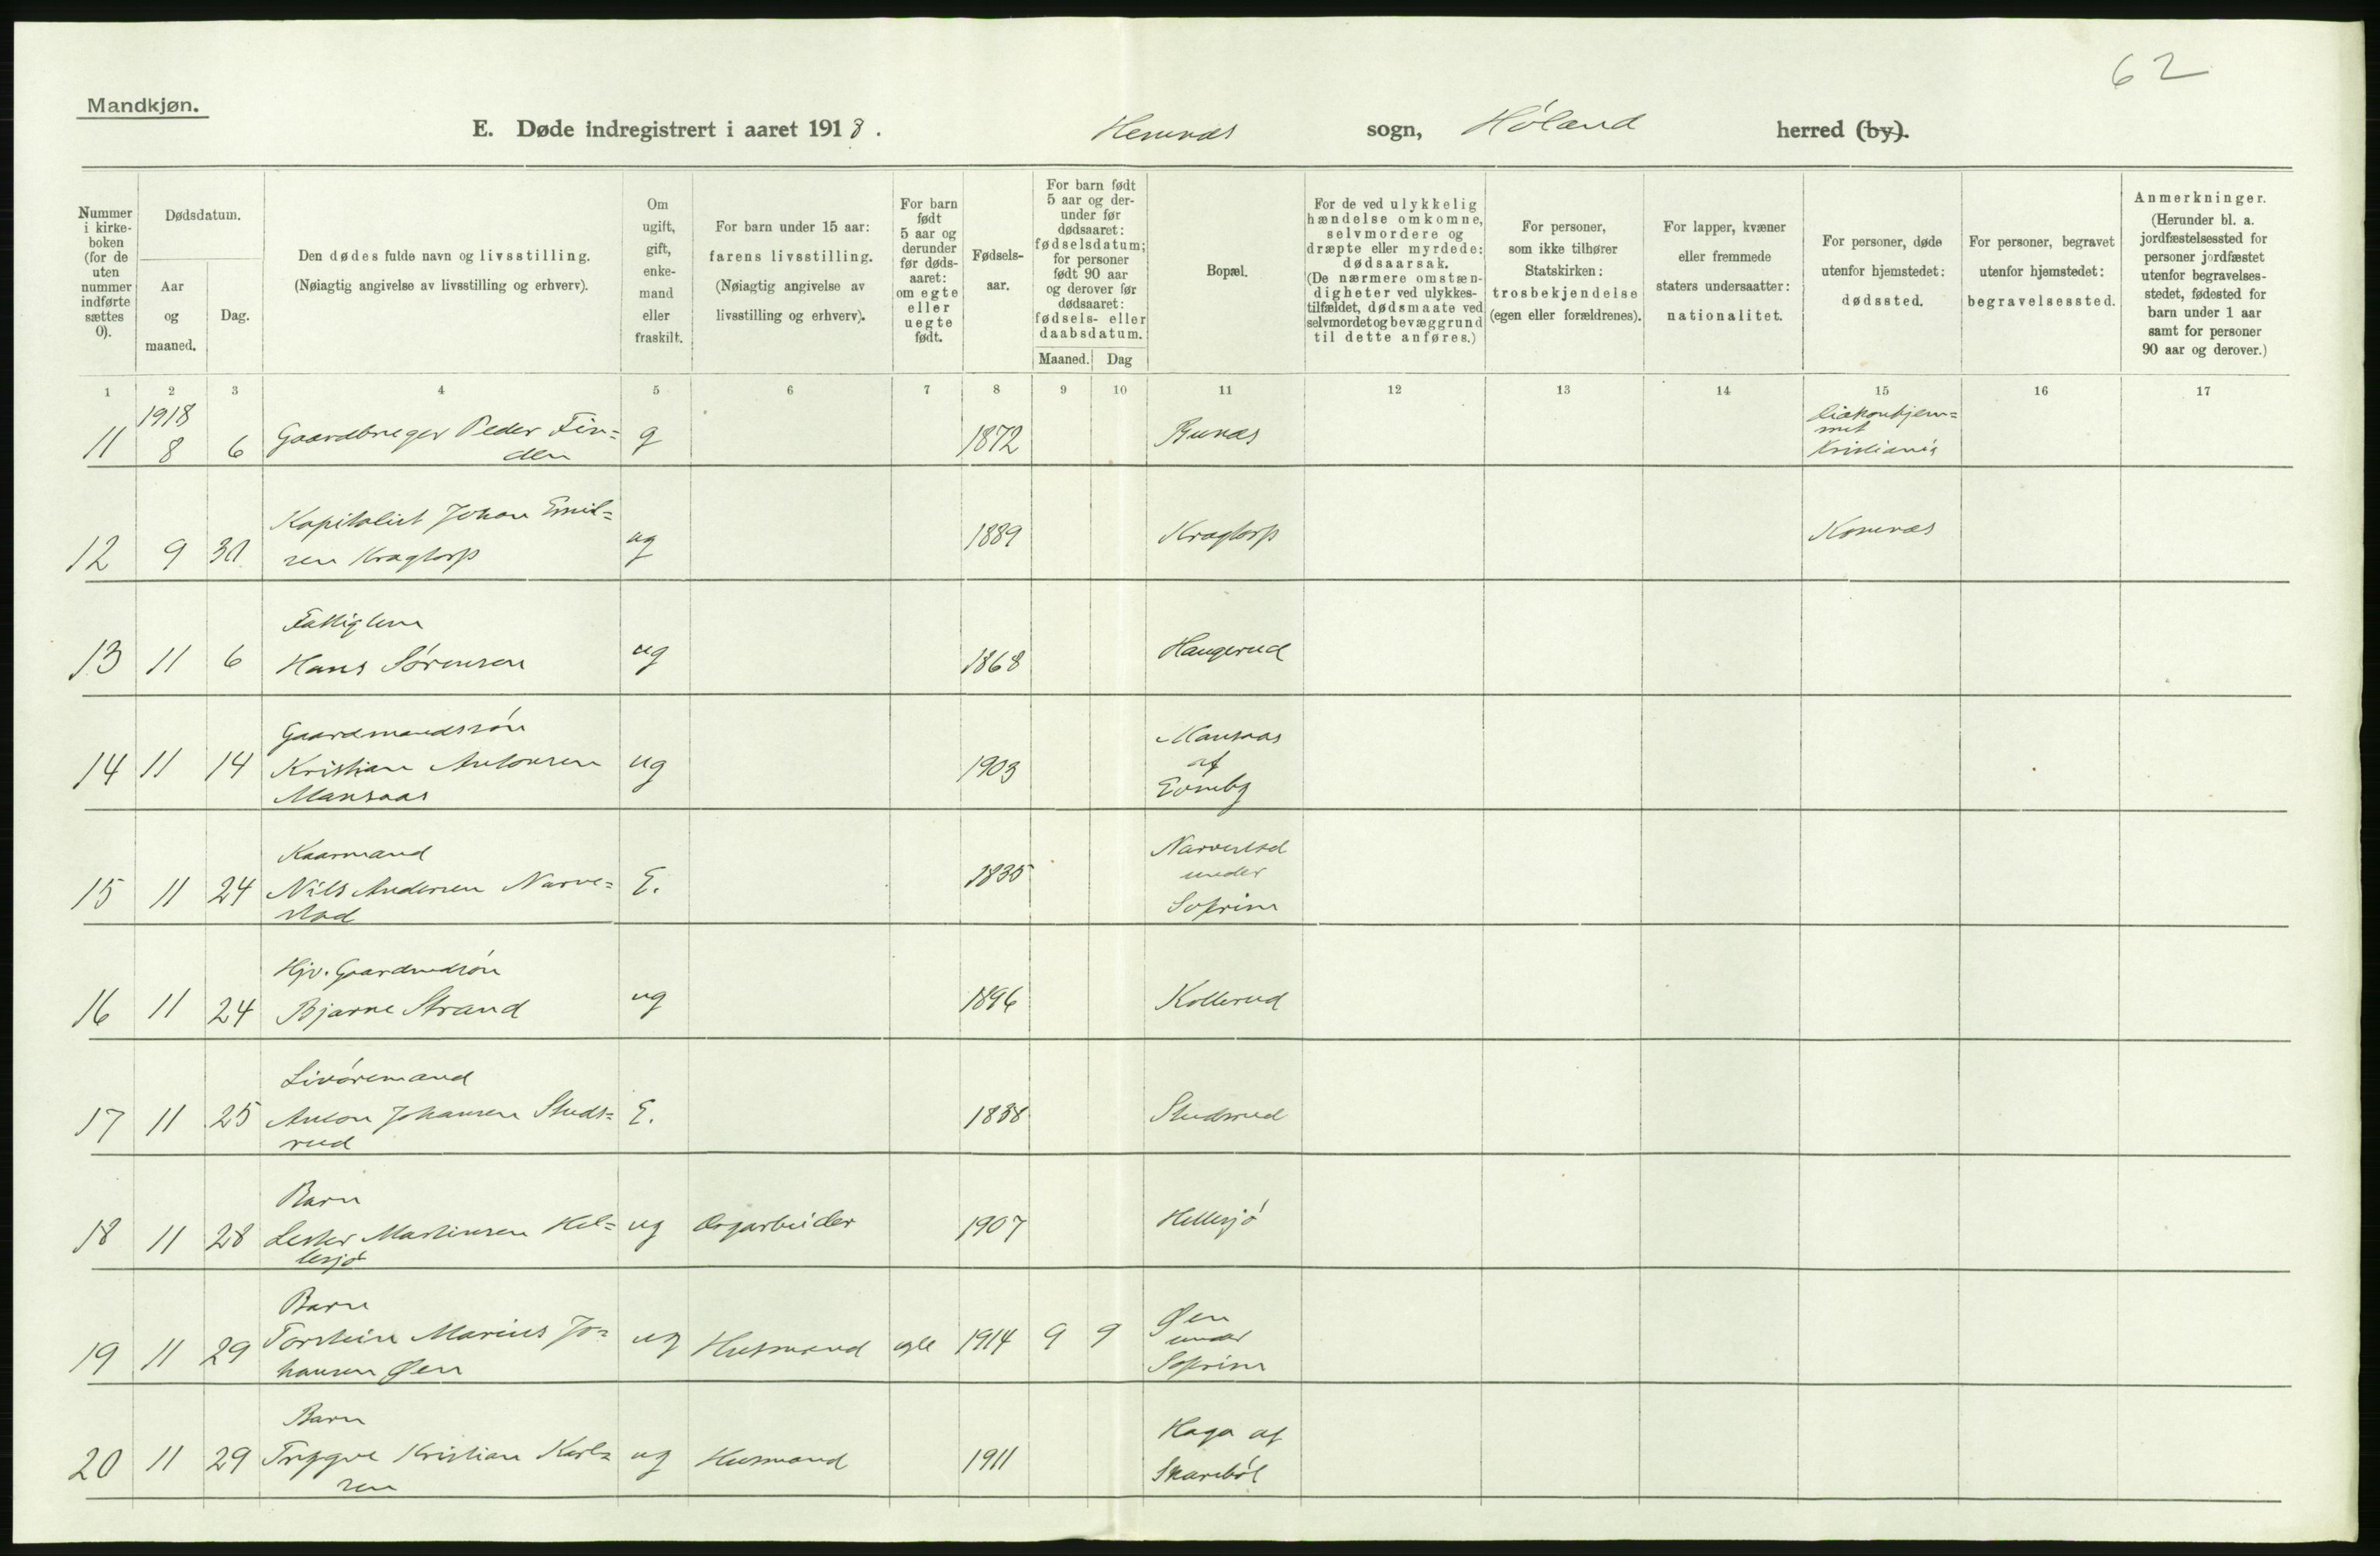 62
Mandkjøn.
E. Døde indregistrert i aaret 1918. Hemnæs sogn, Høland herred (by).
Nummer i kirke-boken (for de uten nummer indførte sættes 0).
Dødsdatum.
Aar og maaned.
Dag.
Den dødes fulde navn og livsstilling.
(Nøiagtig angivelse av livsstilling og erhverv).
Om ugift, gift, enke-mand eller fraskilt.
For barn under 15 aar: farens livsstilling.
(Nøiagtig angivelse av livsstilling og erhverv).
For barn født 5 aar og derunder før døds-aaret: om egte eller uegte født.
Fødsels-aar.
For barn født 5 aar og der-under før dødsaaret: fødselsdatum; for personer født 90 aar og derover før dødsaaret: fødsels- eller daabsdatum.
Maaned.
Dag
Bopæl.
For de ved ulykkelig hændelse omkomne, selvmordere og dræpte eller myrdede: dødsaarsak.
(De nærmere omstæn-digheter ved ulykkes-tilfældet, dødsmaate ved selvmordet og bevæggrund til dette anføres.)
For personer, som ikke tilhører Statskirken: trosbekjendelse (egen eller forældrenes).
For lapper, kvæner eller fremmede staters undersaatter: nationalitet.
For personer, døde utenfor hjemstedet: dødssted.
For personer, begravet utenfor hjemstedet: begravelsessted.
Anmerkninger.
(Herunder bl. a. jordfæstelsessted for personer jordfæstet utenfor begravelses-stedet, fødested for barn under 1 aar samt for personer 90 aar og derover.)
1 2 3 4 5 6 7 8 9 10 11 12 13 14 15 16 17
1918
11 8 6 Gaardbruger Peder Fin=
den g 1872 Bunæs Diakonhjem=
met
Kristiania
12 9 30 Kapitalist Johan Emil=
sen Kragtorp ug 1889 Kragtorp Komnæs
13 11 6 Fattiglem
Hans Sørensen ug 1868 Haugerud
14 11 14 Gaardmandssøn
Kristian Antonsen
Mansaas ug 1903 Mansaas
af
15 11 24 Kaarmand
Nils Andersen Narve=
stad E. 1835 Narvestad
under
Soprim
16 11 24 Hjv. Gaardmdsøn
Bjarne Strand ug 1896 Kollerud
17 11 25 Livøremand
Anton Johansen Studs=
rud E. 1838 Studsrud
18 11 28 Barn
Lester Martinsen Hel=
lesjø ug Dagarbeider 1907 Hellesjø
19 11 29 Barn
Torstein Marius Jo=
hansen Øen ug Husmand egte 1914 9 9 Øen
under
Soprim
20 11 29 Barn
Trygve Kristian Karl=
sen ug Husmand 1911 Haga af
Skarebøl